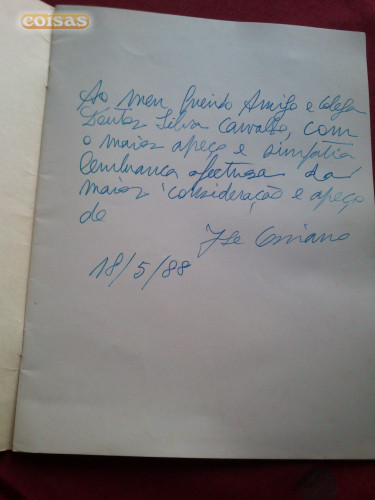 coisas
Ao meu Querido Amigo e Colega
Doutor Silva Carvalho, com
o maior apeço e simpatia
lembrança afectuosa da
maior consideração e apeço
de
18/5/88